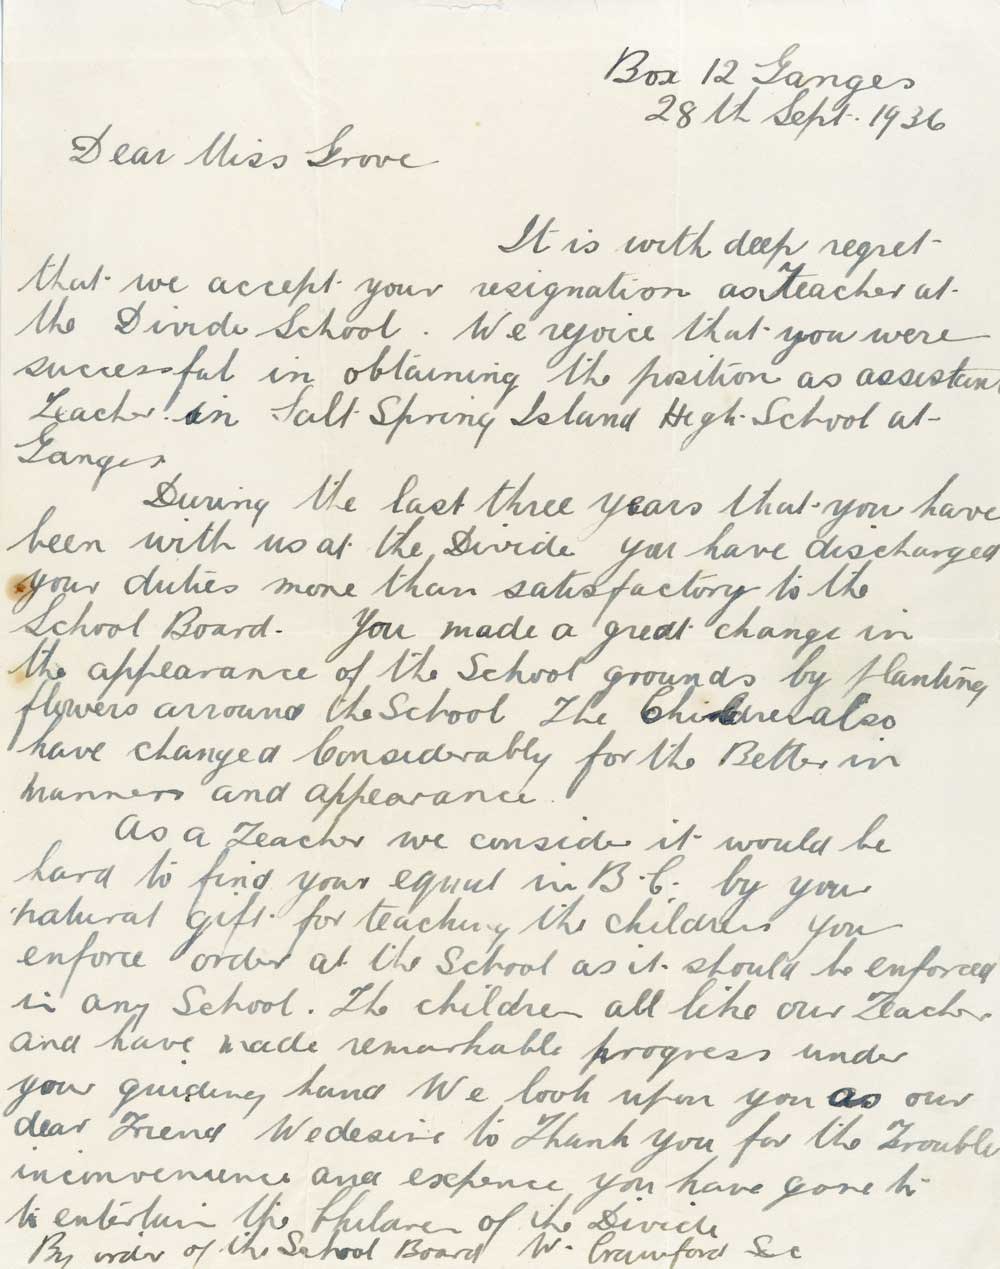 Box 12 Ganges
28th Sept. 1936
Dear Miss Grove
It is with deep regret
that we accept your resignation as Teacher at
the Divide School. We rejoice that you were
successful in obtaining the position as assistant
Teacher in Salt Spring Island High School at
Ganges
During the last three years that you have
been with us at the Divide you have discharged
your duties more than satisfactory to the
School Board. You made a great change in
the appearance of the School grounds by planting
flowers arround the School The Children also
have changed Considerably for the Better in
manners and appearance
As a Teacher we consider it would be
hard to find your equal in B.C. by your
natural gift for teaching the children you
enforce order at the School as it should be enforced
in any School. The children all like our Teacher
and have made remarkable progress under
your guiding hand We look upon you as our
dear Friend We desire to Thank you for the Trouble
inconvenience and expence you have gone to
to entertain the Children of the Divide
By order of the School Board W. Crawford Sec